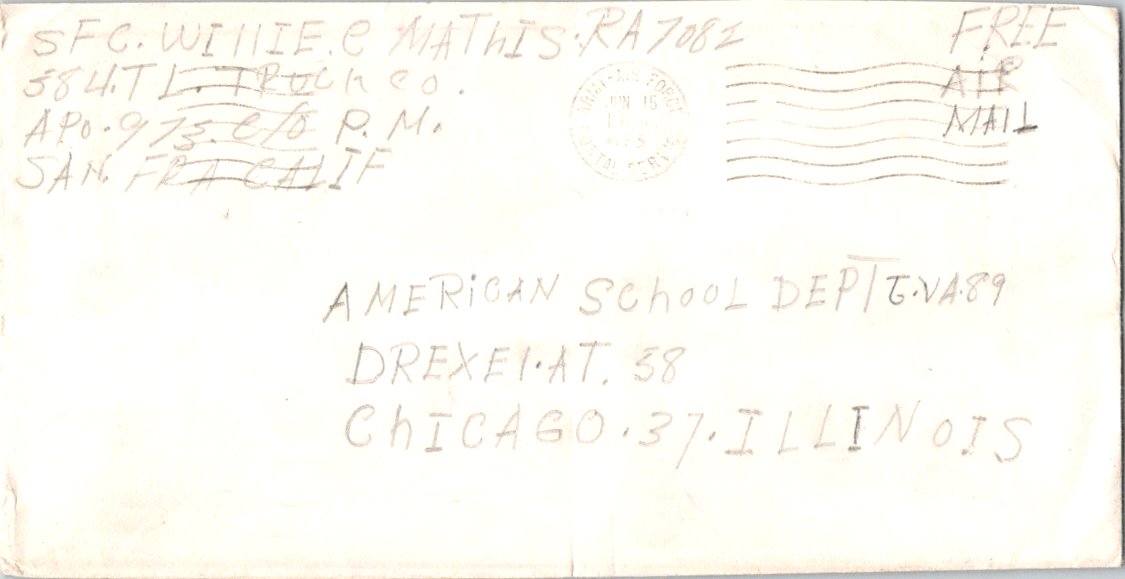 SFC. WILLIE. C MATHIS. RA 7082
584. T L. TRUCK CO.
APO. 973 C/O P. M.
SAN. FRA CALIF
FREE
AIR
MAIL
ARMY-AIR FORCE
JUN 15
POSTAL SERVICE
AMERICAN SCHOOL DEPT G.VA.89
DREXEl. AT. 58
ChICAGO. 37. ILLINOIS